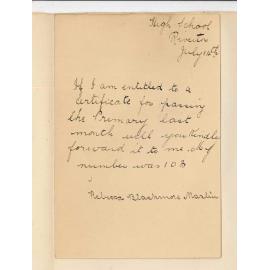 High School
Riverton
July 14th
If I am entitled to a
certificate for passing
the Primary last
month will you kindly
forward it to me. My
number was 103
Rebecca Blackmore Martin